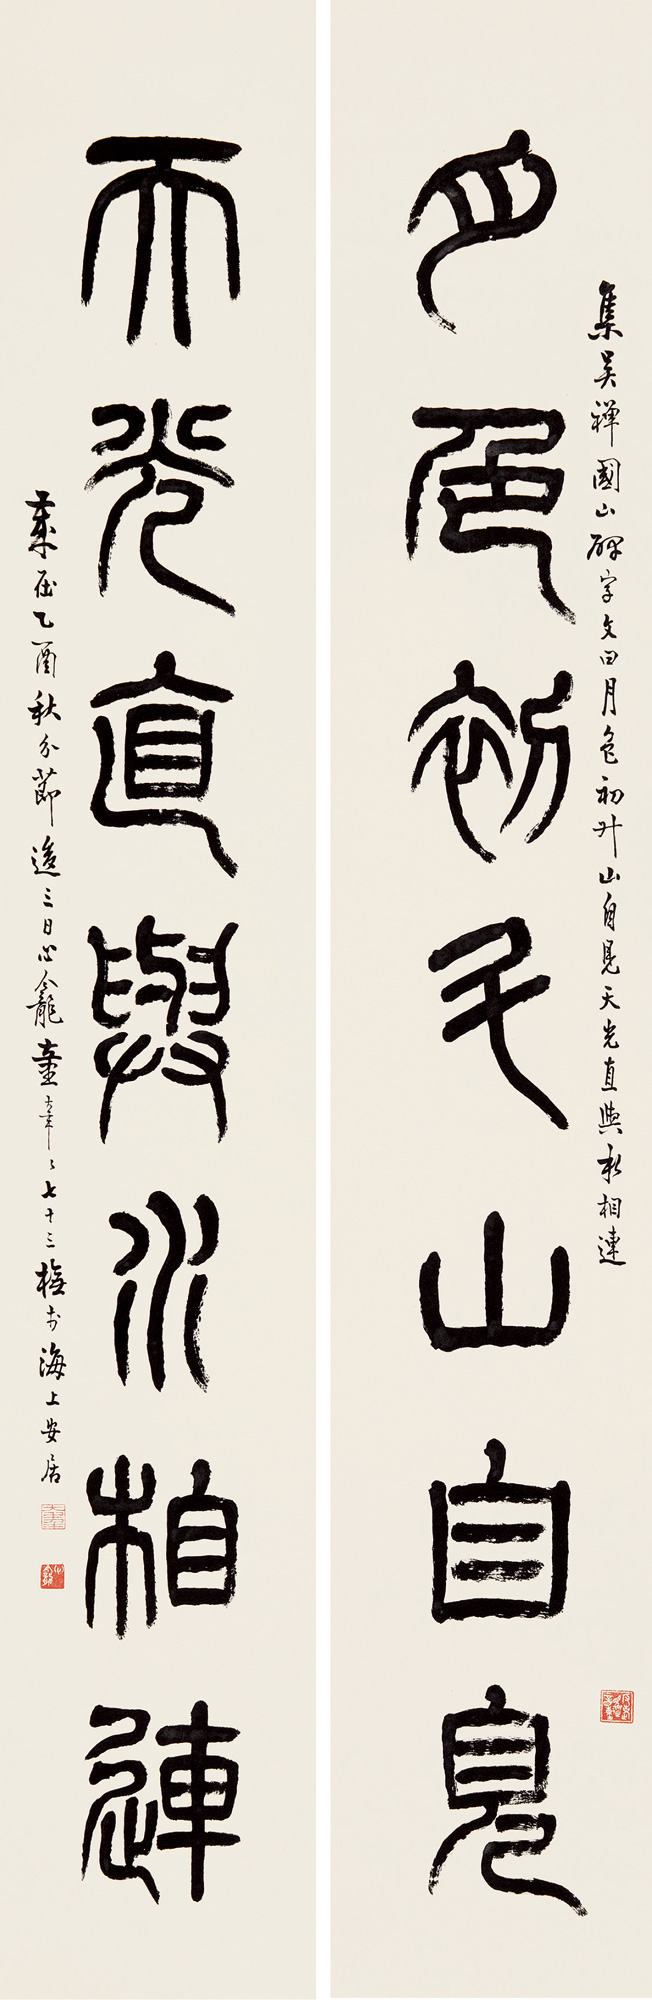 集吳禪國山碑字文曰月色初升山自見天光直與水相連
月色初升山自見
天光直與水相連
歲在乙酉秋分節後三日心龕童大年年七十三橅於海上安居